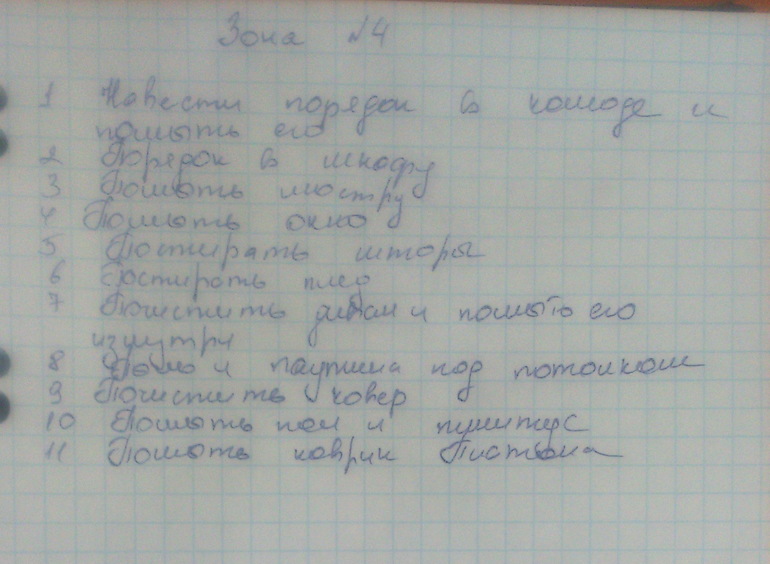 Зона №4
1 Навести порядок в комоде и
помыть его
2 Порядок в шкафу
3 Помыть люстру
4 Помыть окно
5 Постирать шторы
6 Постирать плед
7 Почистить диван и помыть его
изнутри
8 Пыль и паутина под потолком
9 Почистить ковер
10 Помыть пол и плинтус
11 Помыть коврик